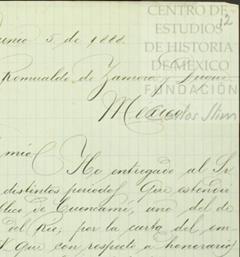 CENTRO DE
ESTUDIOS
DE HISTORIA
DE MÉXICO
FUNDACIÓN
Carlos Slim
12
5, de 1888.
Romualdo de Zamora y Duque
Mexico
mio
He entregado al Sr
distintos periodos que estendu
de Cuencamé, uno del de
del Rio; por la carta del em-
que con respecto a honorarios